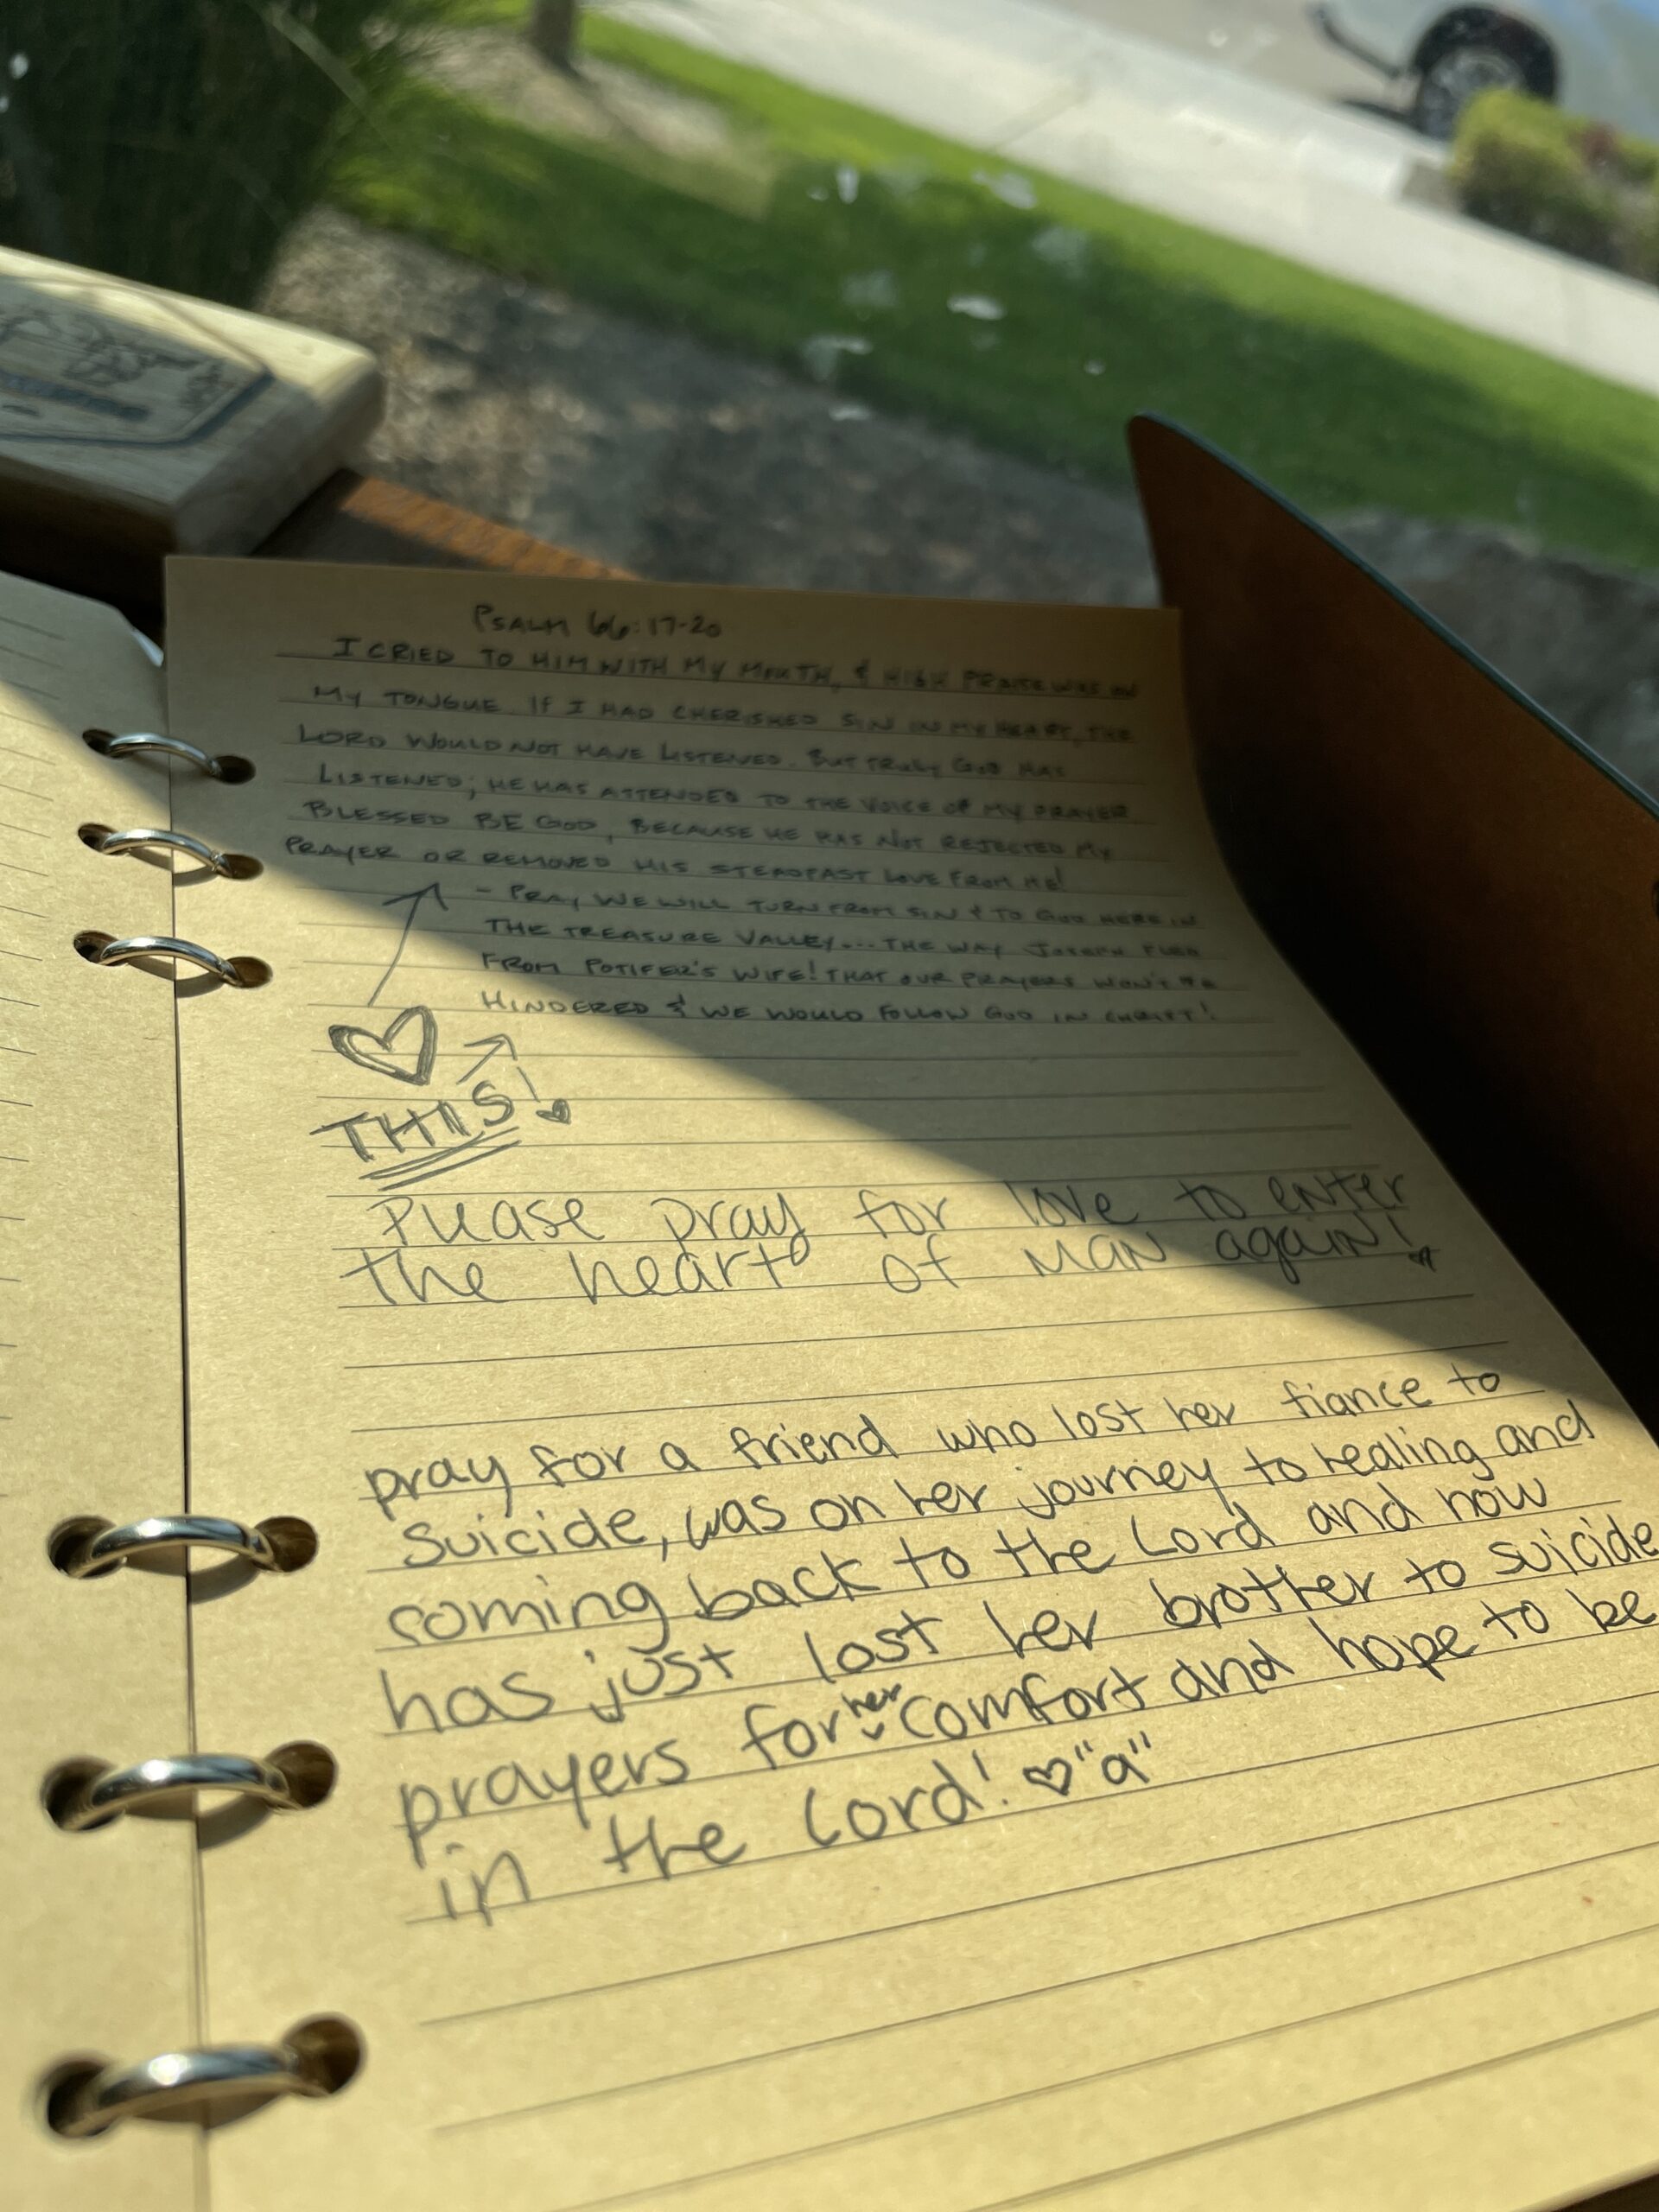 PSALM 66:17-20
I CRIED TO HIM WITH MY MOUTH, & HIGH PRAISE WAS ON
MY TONGUE. IF I HAD CHERISHED SIN IN MY HEART, THE
LORD WOULD NOT HAVE LISTENED. BUT TRULY GOD HAS
LISTENED; HE HAS ATTENDED TO THE VOICE OF MY PRAYER
BLESSED BE GOD, BECAUSE HE HAS NOT REJECTED MY
PRAYER OR REMOVED HIS STEADFAST LOVE FROM ME!
- PRAY WE WILL TURN FROM SIN & TO GOD HERE IN
THE TREASURE VALLEY.... THE WAY JOSEPH FLED
FROM POTIFER'S WIFE! THAT OUR PRAYERS WON'T BE
HINDERED & WE WOULD FOLLOW GOD IN CHRIST!
THIS!
Please pray for love to enter
the heart of MAN again!
pray for a friend who lost her fiance to
suicide, was on her journey to healing and
coming back to the Lord and now
has just lost her brother to suicide
prayers for her comfort and hope to be
in the Lord! ♡ "a"